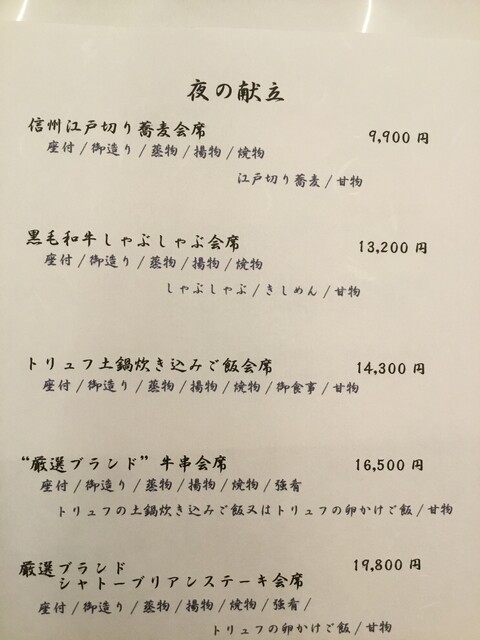 夜の献立
信州江戸切り蕎麦会席 9,900 円
座付/御造り/蒸物/揚物/焼物
江戸切り蕎麦/甘物
黒毛和牛しゃぶしゃぶ会席 13,200 円
座付/御造り/蒸物/揚物/焼物
しゃぶしゃぶ/きしめん/甘物
トリュフ土鍋炊き込みご飯会席 14,300 円
座付/御造り/蒸物/揚物/焼物/御食事/甘物
“厳選ブランド”牛串会席 16,500 円
座付/御造り/蒸物/揚物/焼物/強肴
トリュフの土鍋炊き込みご飯又はトリュフの卵かけご飯/甘物
厳選ブランド 19,800 円
シャトーブリアンステーキ会席
座付/御造り/蒸物/揚物/焼物/強肴/
トリュフの卵かけご飯/甘物